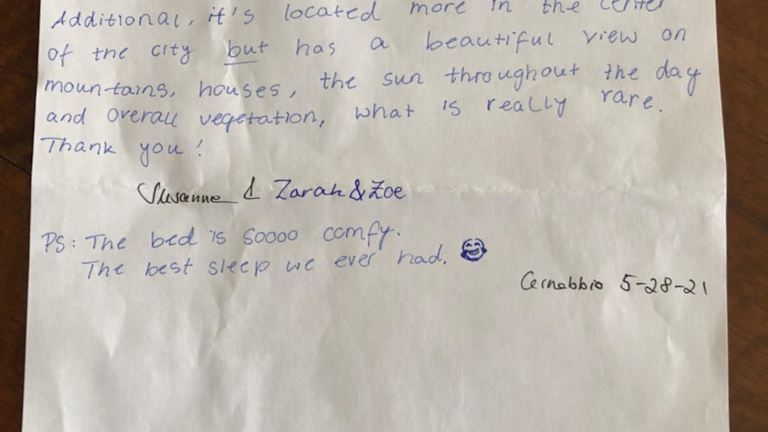 Additional, it's located more in the center
of the city but has a beautiful view on
mountains, houses, the sun throughout the day
and overall vegetation, what is really rare.
Thank you!
Susanne & Zarah & Zoe
PS: The bed is soooo comfy.
The best sleep we ever had. 😂
Cernobbio 5-28-21